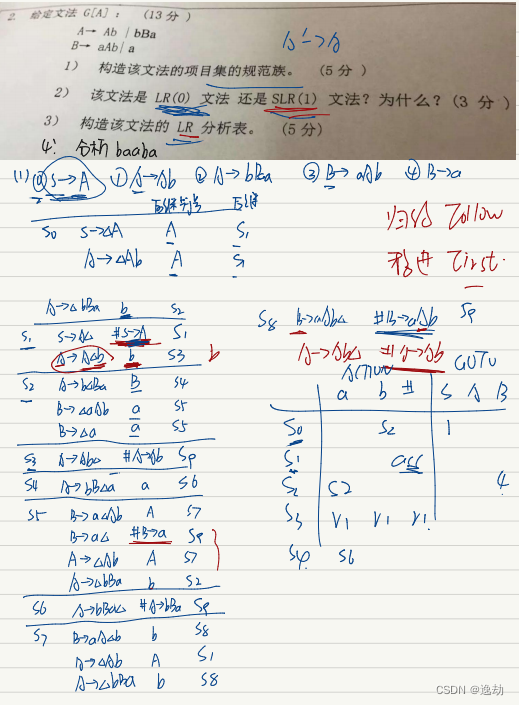 2. 给定文法 G[A]: (13 分)
A→ Ab | bBa
B→ aAb| a
1) 构造该文法的项目集的规范族。 (5 分)
2) 该文法是 LR(0) 文法 还是 SLR(1) 文法? 为什么? (3 分)
3) 构造该文法的 LR 分析表。 (5分)
4. 分析 baaba
A'→A
(1) ⓪ S→A ① A→Ab ② A→bBa ③ B→aAb ④ B→a
后继符号 后继
S0 S→△A A S1
A→△Ab A S1
A→△bBa b S2
S1 S→A△ #S→A S1
A→A△b b S3 b
S2 A→b△Ba B S4
B→△aAb a S5
B→△a a S5
S3 A→Ab△ #A→Ab S9
S4 A→bB△a a S6
S5 B→a△Ab A S7
B→a△ #B→a S9
A→△Ab A S7
A→△bBa b S2
S6 A→bBa△ #A→bBa S9
S7 B→aA△b b S8
A→△Ab A S1
A→△bBa b S8
归约 Follow
移进 First.
S8 B→aAb△ #B→aAb S9
A→Ab△ #A→Ab
ACTION GOTO
a b # S A B
S0 S2 1
S1 acc
S2 S2 4
S3 r1 r1 r1
S4 S6
CSDN @逸劫